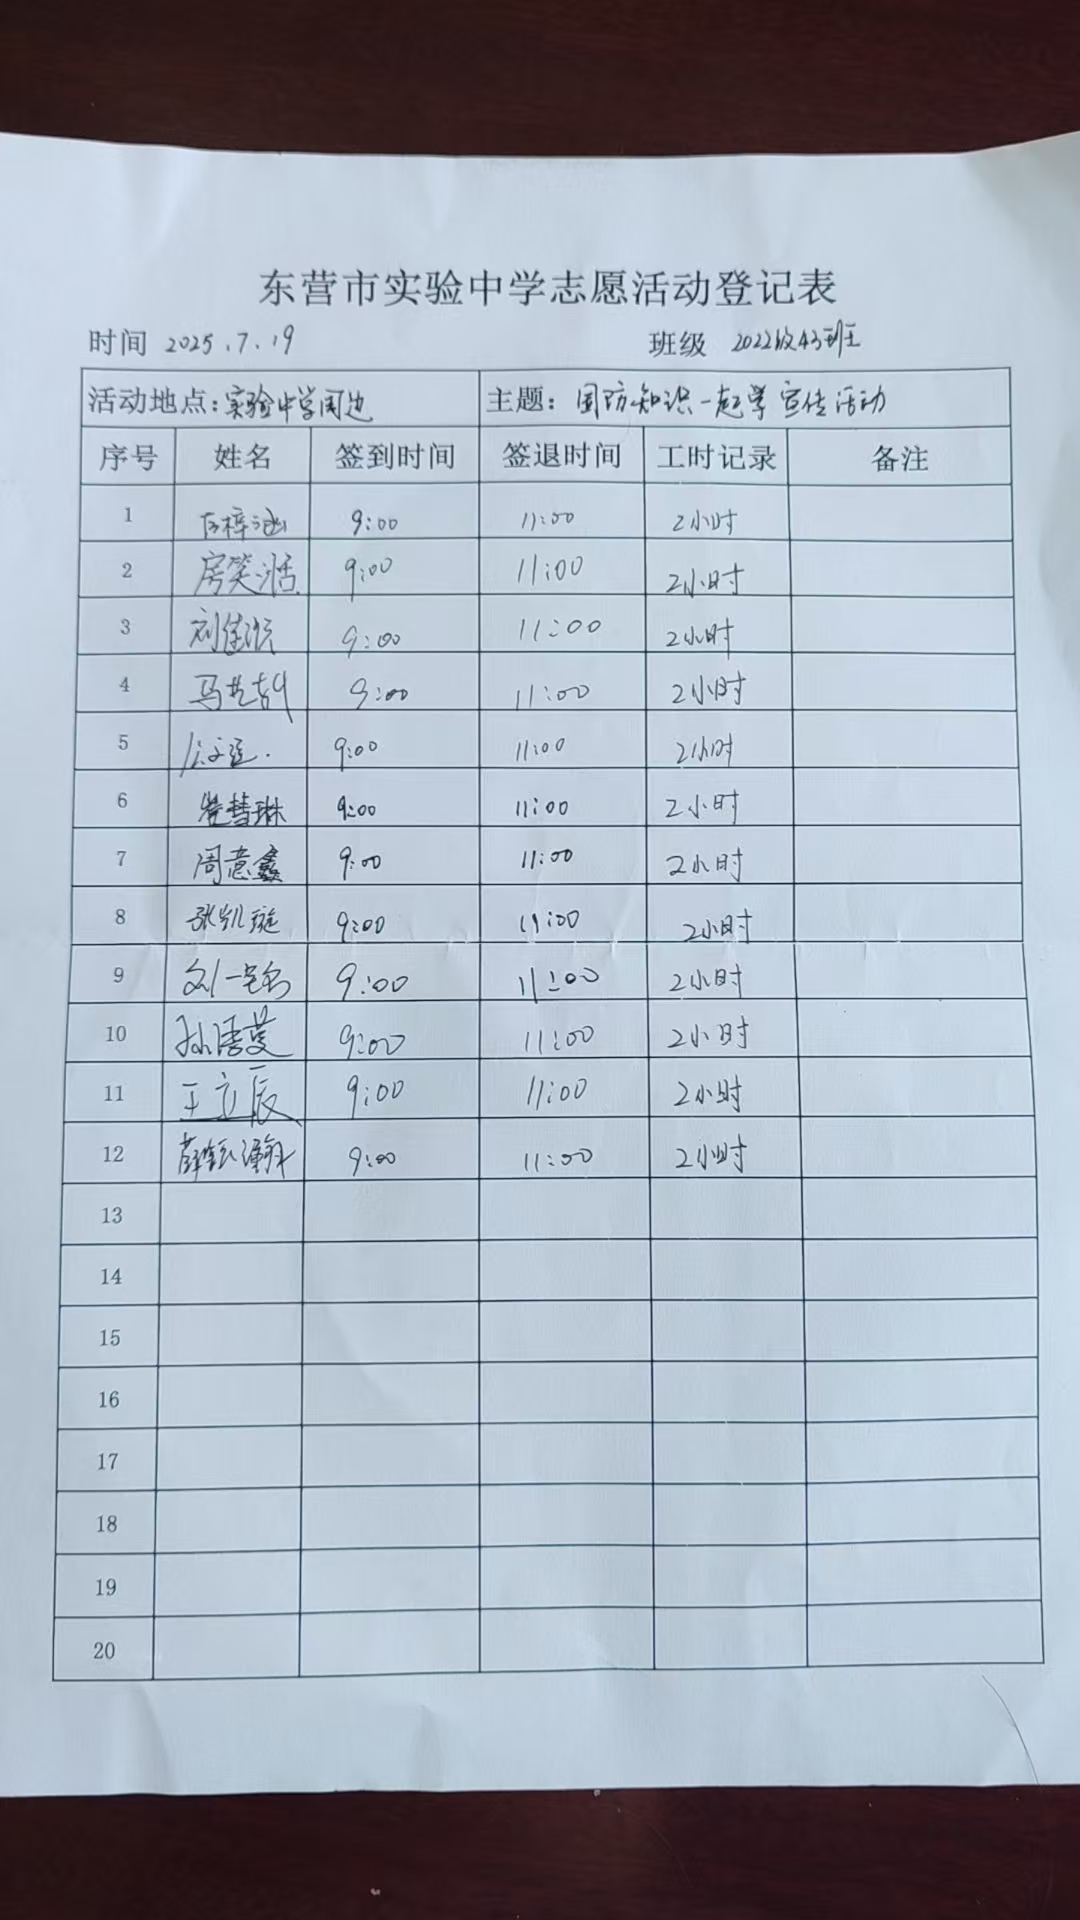 东营市实验中学志愿活动登记表
时间 2025.7.19 班级 2022级43班
活动地点:实验中学周边 主题:国防知识一起学宣传活动
序号 姓名 签到时间 签退时间 工时记录 备注
1 梓涵 9:00 11:00 2小时
2 房笑湉 9:00 11:00 2小时
3 刘佳 9:00 11:00 2小时
4 马艺 9:00 11:00 2小时
5 9:00 11:00 2小时
6 慧琳 9:00 11:00 2小时
7 周意鑫 9:00 11:00 2小时
8 张凯璇 9:00 11:00 2小时
9 刘一 9:00 11:00 2小时
10 孙 9:00 11:00 2小时
11 王立辰 9:00 11:00 2小时
12 薛 9:00 11:00 2小时
13
14
15
16
17
18
19
20